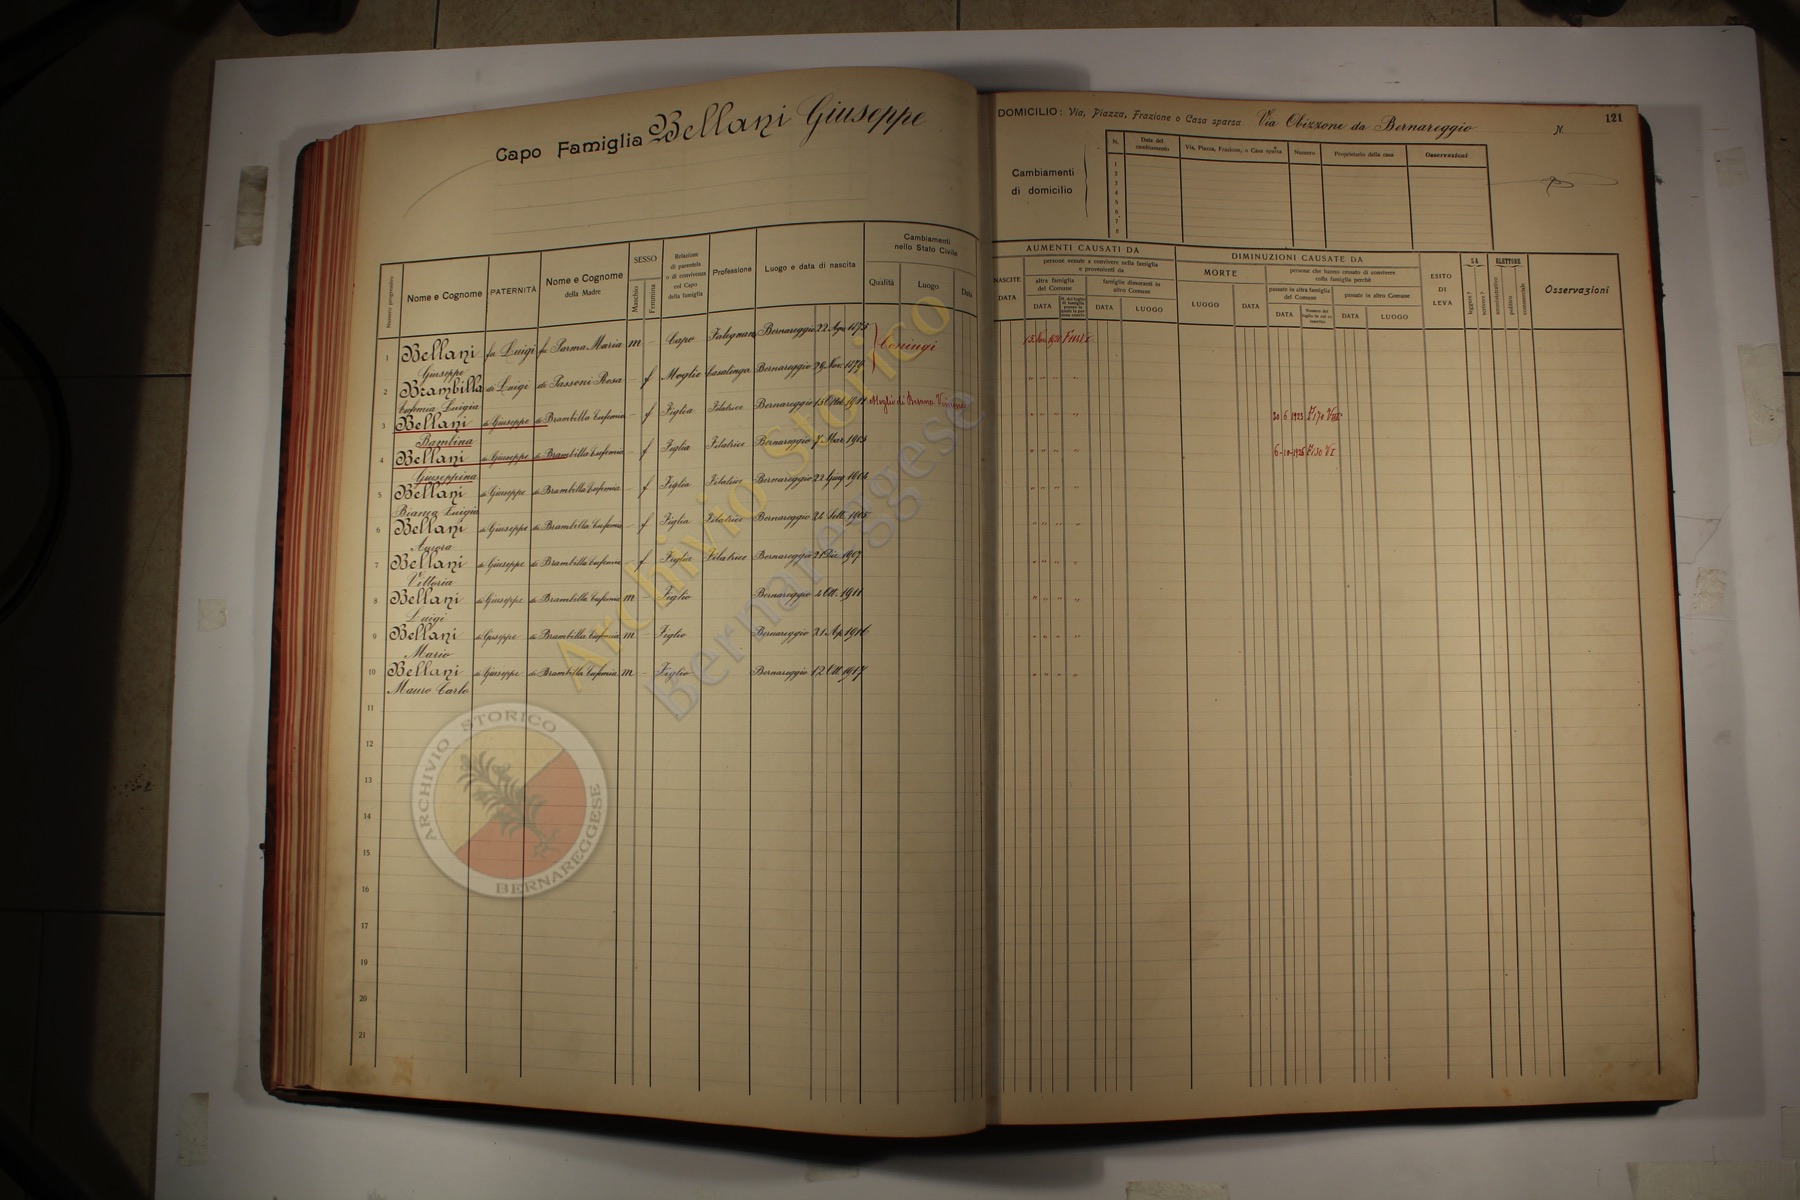 Capo Famiglia Bellani Giuseppe
DOMICILIO: Via, Piazza, Frazione o Casa sparsa Via Obizzone da Bernareggio N. 121
Cambiamenti di domicilio
N. Data del cambiamento Via, Piazza, Frazione, o Casa sparsa Numero Proprietario della casa Osservazioni
1
2
3
4
5
6
7
8
Numero progressivo Nome e Cognome PATERNITÀ Nome e Cognome della Madre SESSO Maschio Femmina Relazione di parentela o di convivenza col Capo della famiglia Professione Luogo e data di nascita Cambiamenti nello Stato Civile Qualità Luogo Data
AUMENTI CAUSATI DA
NASCITE DATA
persone venute a convivere nella famiglia e provenienti da
altra famiglia del Comune DATA
famiglie dimoranti in altro Comune DATA LUOGO
DIMINUZIONI CAUSATE DA
MORTE LUOGO DATA
persone che hanno cessato di convivere nella famiglia perchè
passate in altra famiglia del Comune DATA
passate in altro Comune DATA LUOGO
ESITO DI LEVA
SA leggere? scrivere?
ELETTORE amministrativo politico commerciale
Osservazioni
1 Bellani Giuseppe fu Luigi fu Parma Maria m – Capo Falegname Bernareggio 22 Ago 1873 Coniugi
2 Brambilla Eufemia Luigia di Luigi di Passoni Rosa – f Moglie Casalinga Bernareggio 29 Nov. 1879 " " " "
3 Bellani Bambina di Giuseppe di Brambilla Eufemia – f Figlia Filatrice Bernareggio Moglie di " " " " 20 6 1923
4 Bellani Giuseppina di Giuseppe di Brambilla Eufemia – f Figlia Filatrice Bernareggio 7 Mar. 1903 " " " "
5 Bellani Bianca Luigia di Giuseppe di Brambilla Eufemia – f Figlia Filatrice Bernareggio 22 Giug 1904 " " " "
6 Bellani Aurora di Giuseppe di Brambilla Eufemia – f Figlia Filatrice Bernareggio 24 Sett. 1905 " " " "
7 Bellani Vittoria di Giuseppe di Brambilla Eufemia – f Figlia Filatrice Bernareggio 21 Dic. 1907 " " " "
8 Bellani Luigi di Giuseppe di Brambilla Eufemia m – Figlio Bernareggio 4 Ott. 1911 " " " "
9 Bellani Mario di Giuseppe di Brambilla Eufemia m – Figlio Bernareggio 21 Ap. 1916 " " " "
10 Bellani Mauro Carlo di Giuseppe di Brambilla Eufemia m – Figlio Bernareggio 12 Ott. 1917 " " " "
11
12
13
14
15
16
17
18
19
20
21
Archivio Storico
Bernareggese
ARCHIVIO STORICO
BERNAREGGESE